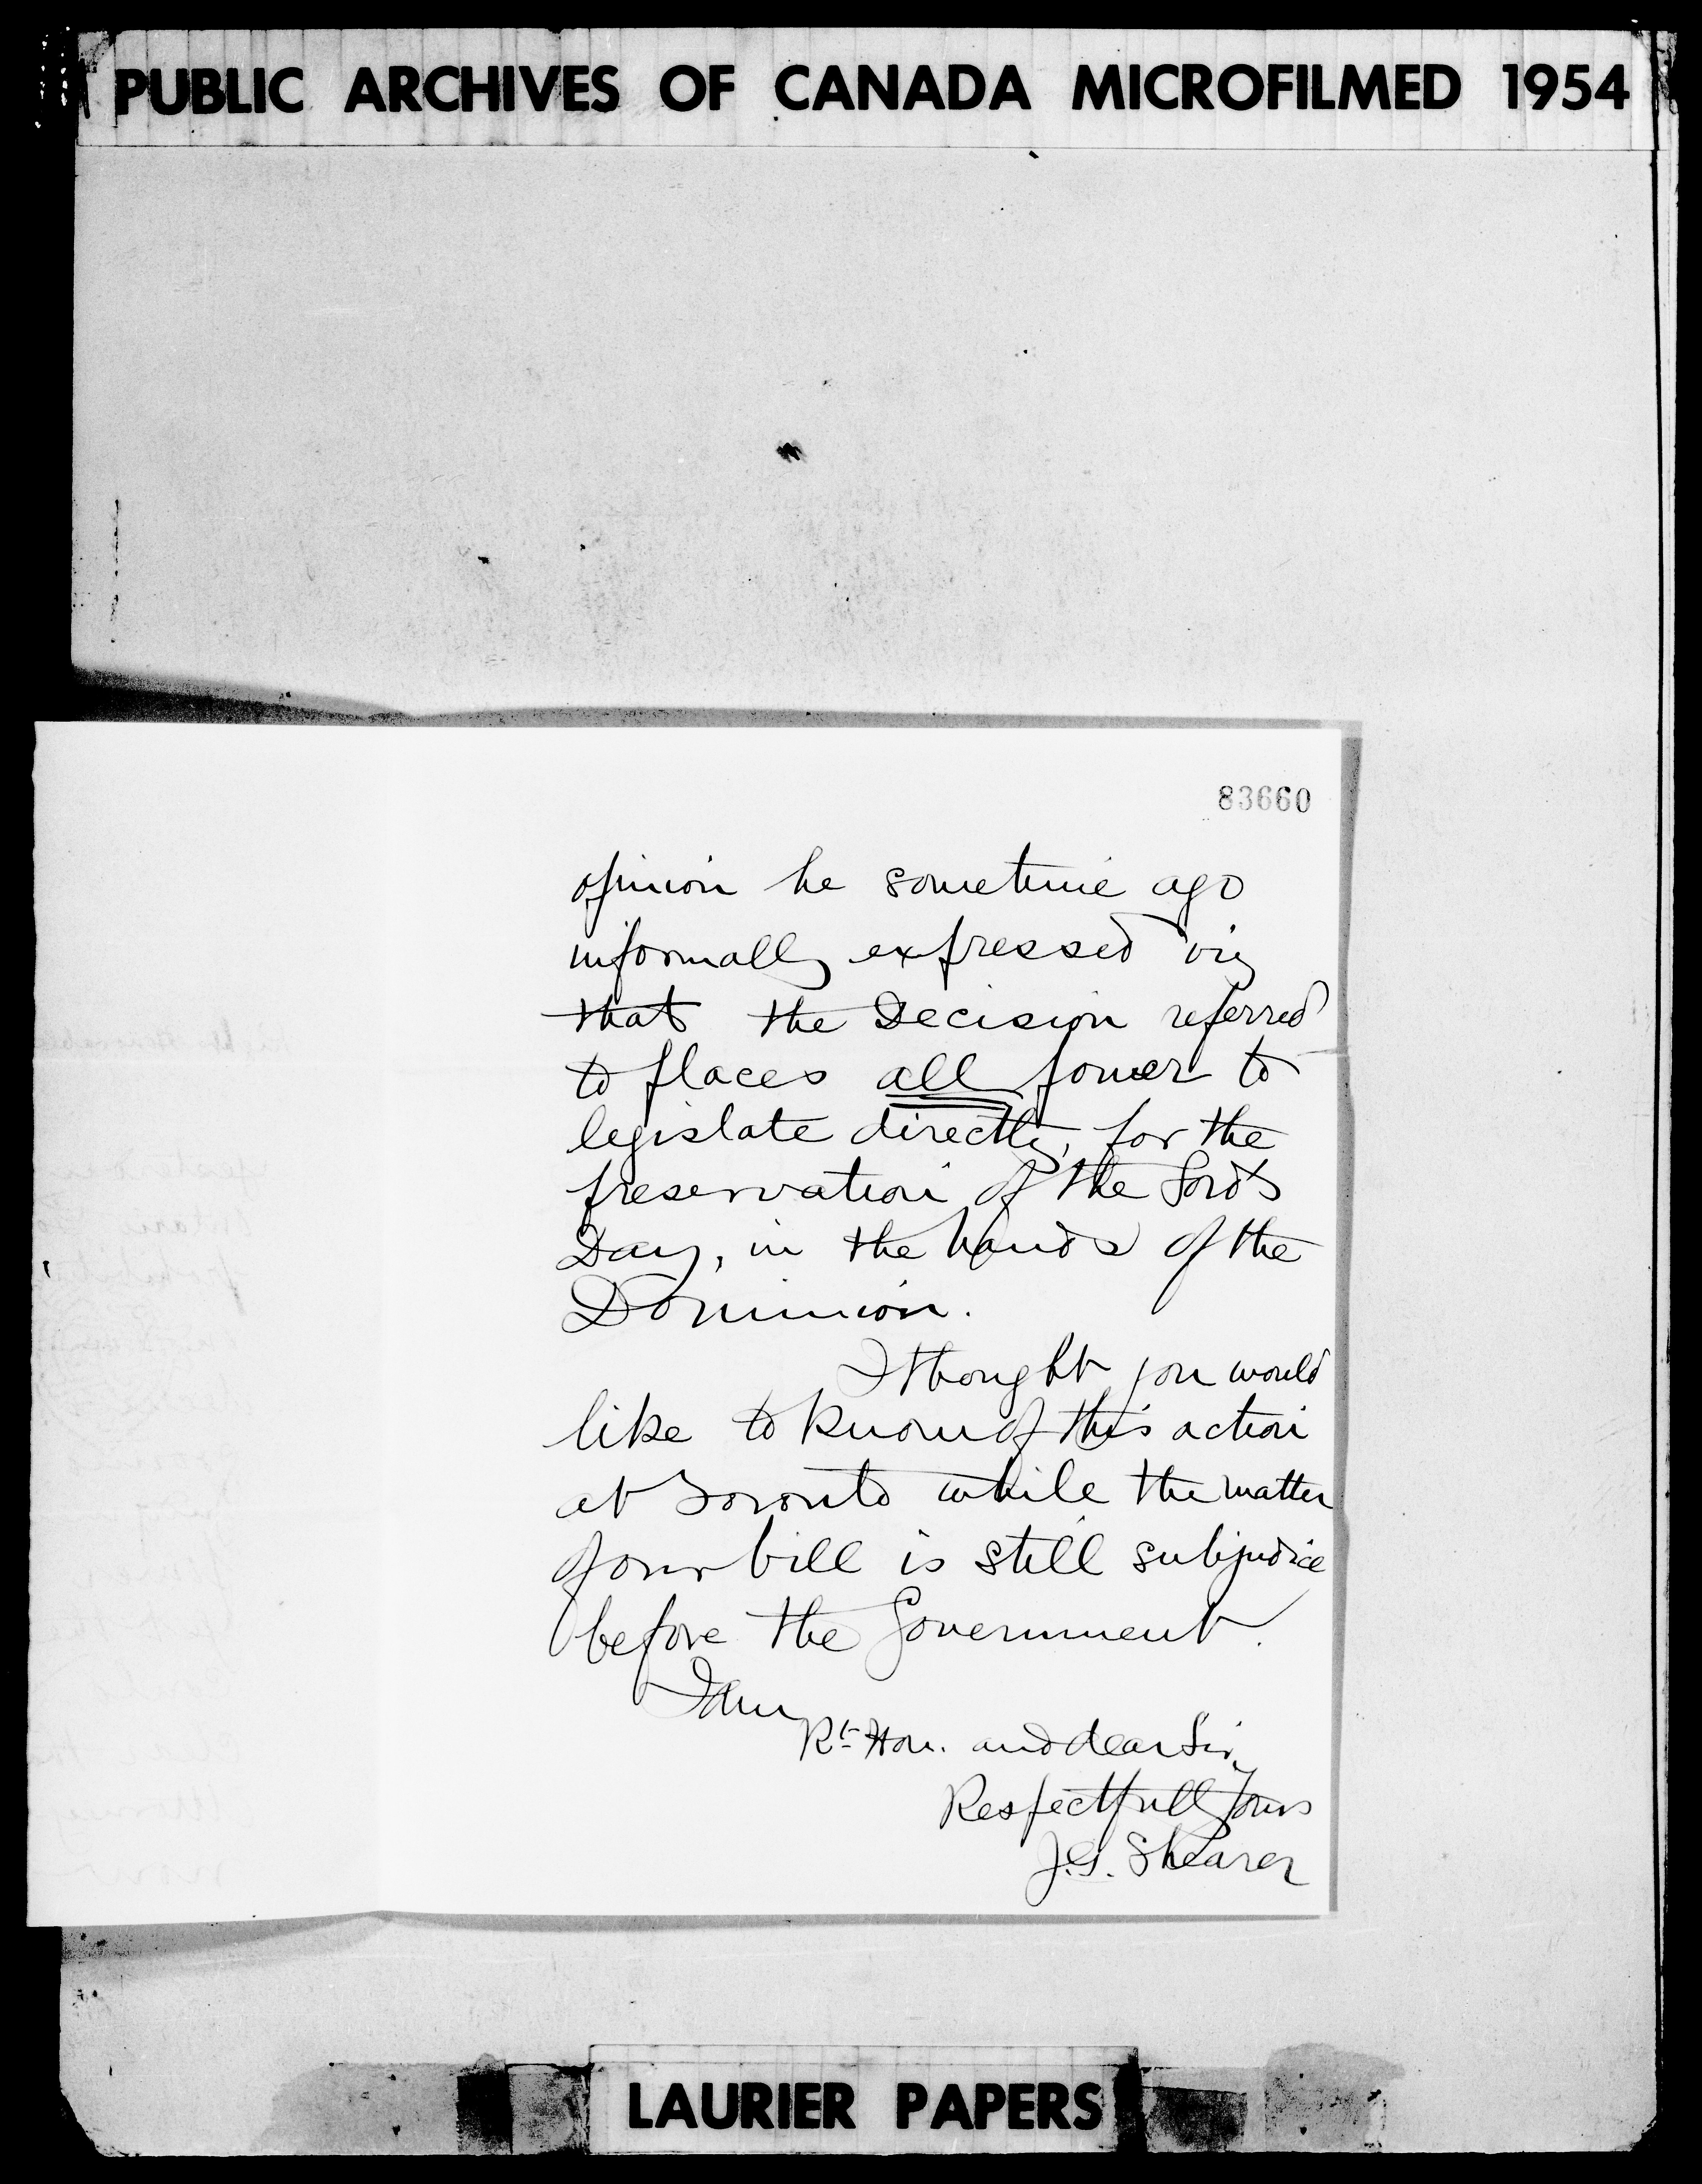 PUBLIC ARCHIVES OF CANADA MICROFILMED 1954
83660
opinion he sometime ago
informally expressed viz
that the Decision referred
to places all power to
legislate directly, for the
preservation of the Lord's
Day, in the hands of the
Dominion.
I thought you would
like to know of this action
at Toronto while the matter
of our bill is still subjudice
before the Government.
I am
Rt Hon. and dear Sir,
Respectfully Yours
J.G. Shearer
LAURIER PAPERS